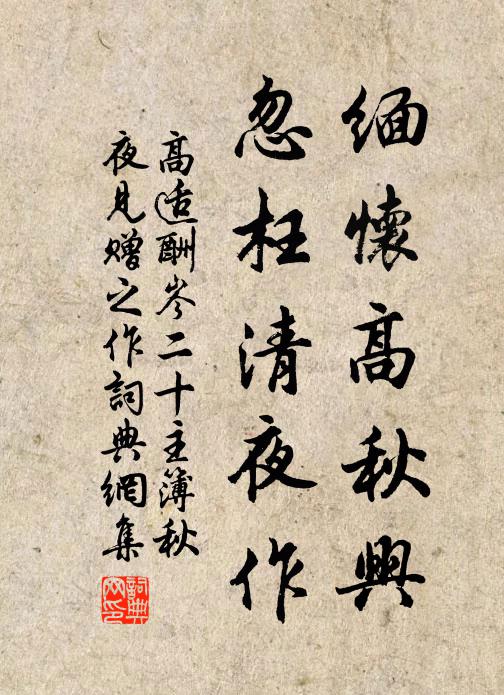 緬懷高秋興
忽枉清夜作
高适酬岑二十主簿秋
夜見贈之作詞典網集
詞典
网印